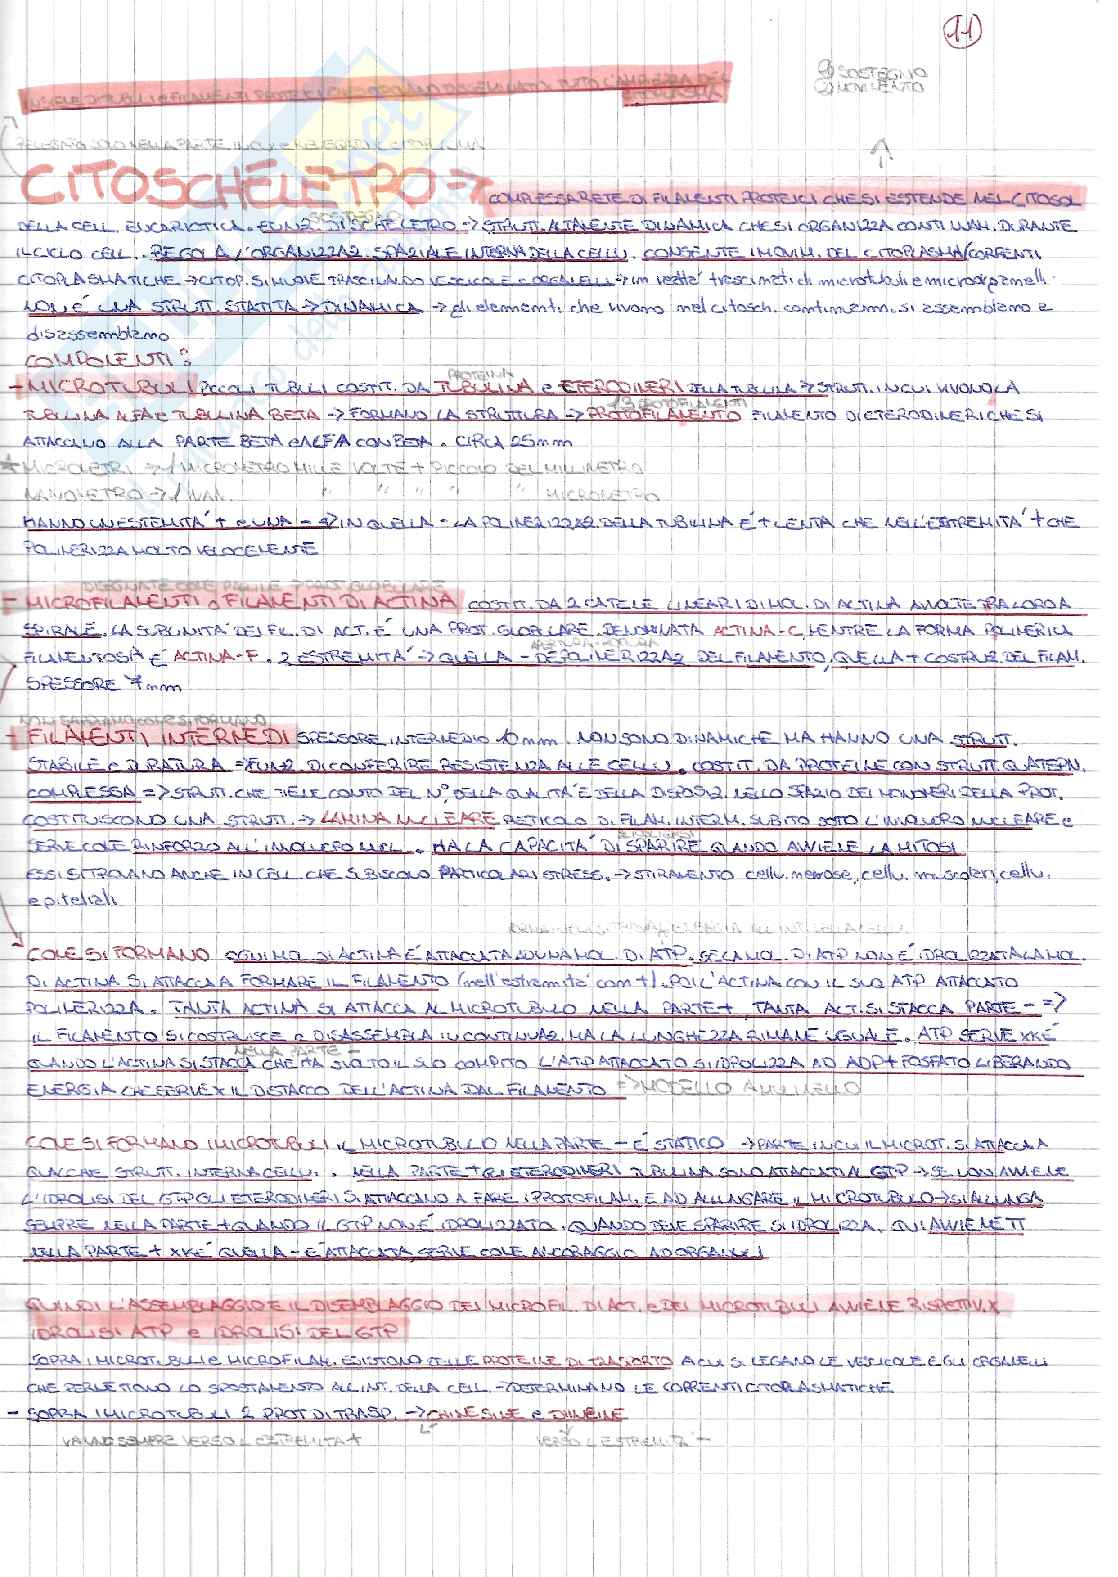 11
INSIEME DI TUBULI E FILAMENTI PROTEICI CHE TUTTA L'AMPIEZZA DEL
① SOSTEGNO
② MOVIMENTO
CITOSCHELETRO => COMPLESSA RETE DI FILAMENTI PROTEICI CHE SI ESTENDE NEL CITOSOL
DELLA CELL. EUCARIOTICA. FUNZ. DI SCHELETRO -> STRUTT. ALTAMENTE DINAMICA CHE SI ORGANIZZA CONTINUAM. DURANTE
IL CICLO CELL. REGOLA L'ORGANIZZAZ. SPAZIALE INTERNA DELLA CELLU. CONSENTE I MOVIM. DEL CITOPLASMA/CORRENTI
CITOPLASMATICHE -> CITOP. SI MUOVE TRASCINANDO VESCICOLE E ORGANELLI -> in realtà trascinati di microtubuli e microfilamenti.
NON É UNA STRUTT. STATITA -> DINAMICA -> gli elementi che vivono nel citosch. continuam. si assemblano e
disassemblano
COMPONENTI:
- MICROTUBULI PICCOLI TUBULI COSTIT. DA PROTEINA TUBULINA e ETERODIMERI DELLA TUBULINA -> STRUTT. IN CUI VI SONO LA
TUBULINA ALFA E TUBULINA BETA -> FORMANO LA STRUTTURA -> 13 PROTOFILAMENTI PROTOFILAMENTO FILAMENTO DI ETERODIMERI CHE SI
ATTACCANO ALLA PARTE BETA e ALFA CON BETA. CIRCA 25 mm
* MICROMETRI -> 1 MICROMETRO MILLE VOLTE + PICCOLO DEL MILLIMETRO
NANOMETRO -> 1 NAN. " " " " " MICROMETRO
HANNO UN ESTEMITÁ + e UNA - -> IN QUELLA - LA POLIMERIZZAZ. DELLA TUBULINA É + LENTA CHE NELL'ESTREMITÁ + CHE
POLIMERIZZA MOLTO VELOCEMENTE
DISEGNATE COME PALLINE -> PROT. GLOBULARE
- MICROFILAMENTI o FILAMENTI DI ACTINA COSTIT. DA 2 CATENE LINEARI DI MOL. DI ACTINA AVVOLTE TRA LORO A
SPIRALE. LA SUBUNITÁ DEI FIL. DI ACT. É UNA PROT. GLOBULARE DENOMINATA ACTINA-G, MENTRE LA FORMA POLIMERICA
FILAMENTOSA É ACTINA-F. 2 ESTREMITÁ -> QUELLA - DEPOLIMERIZZAZ. DEL FILAMENTO, QUELLA + COSTRUZ. DEL FILAM.
SPESSORE 7 mm
NON SAPPIAMO COME SI FORMANO
- FILAMENTI INTERMEDI SPESSORE INTERMEDIO 10 mm. NON SONO DINAMICHE MA HANNO UNA STRUTT.
STABILE e DURATURA => FUNZ. DI CONFERIRE RESISTENZA ALLE CELLU. COSTIT. DA PROTEINE CON STRUTT. QUATERN.
COMPLESSA => STRUTT. CHE TIENE CONTO DEL N°, DELLA QUALITÁ E DELLA DISPOSIZ. NELLO SPAZIO DEI MONOMERI DELLA PROT.
COSTITUISCONO UNA STRUTT. -> LAMINA NUCLEARE RETICOLO DI FILAM. INTERM. SUBITO SOTTO L'INVOLUCRO NUCLEARE e
SERVE COME RINFORZO ALL'INVOLUCRO NUCL. HA LA CAPACITÁ DI SPARIRE QUANDO AVVIENE LA MITOSI
ESSI SI TROVANO ANCHE IN CELL. CHE SUBISCONO PARTICOLARI STRESS. -> STIRAMENTO cellu. nervose, cellu. muscolari, cellu.
epiteliali.
COME SI FORMANO OGNI MOL. DI ACTINA É ATTACCATA AD UNA MOL. DI ATP. SE LA MOL. DI ATP NON É IDROLIZZATA LA MOL.
DI ACTINA SI ATTACCA A FORMARE IL FILAMENTO (nell'estremità con +). POI L'ACTINA CON IL SUO ATP ATTACCATO
POLIMERIZZA. TANTA ACTINA SI ATTACCA AL MICROTUBULO NELLA PARTE + TANTA ACT. SI STACCA PARTE - =>
IL FILAMENTO SI COSTRUISCE e DISASSEMBLA IN CONTINUAZ. MA LA LUNGHEZZA RIMANE UGUALE. ATP SERVE XKÉ
QUANDO L'ACTINA SI STACCA NELLA PARTE - CHE HA SVOLTO IL SUO COMPITO L'ATP ATTACCATO SI IDROLIZZA AD ADP + FOSFATO LIBERANDO
ENERGIA CHE SERVE X IL DISTACCO DELL'ACTINA DAL FILAMENTO -> MODELLO A MULINELLO
COME SI FORMANO I MICROTUBULI. IL MICROTUBULO NELLA PARTE - É STATICO -> PARTE IN CUI IL MICROT. SI ATTACCA A
QUALCHE STRUTT. INTERNA CELLU. NELLA PARTE + GLI ETERODIMERI TUBULINA SONO ATTACCATI AL GTP -> SE NON AVVIENE
L'IDROLISI DEL GTP GLI ETERODIMERI SI ATTACCANO A FARE I PROTOFILAM. E AD ALLUNGARE IL MICROTUBULO -> SI ALLUNGA
SEMPRE NELLA PARTE + QUANDO IL GTP NON É IDROLIZZATO. QUANDO DEVE SPARIRE SI IDROLIZZA. QUI AVVIENE TT
NELLA PARTE + XKÉ QUELLA - É ATTACCATA, SERVE COME ANCORAGGIO AD ORGANULI
QUINDI L'ASSEMBLAGGIO E IL DISEMBLAGGIO DEI MICROFIL. DI ACT. e DEI MICROTUBULI AVVIENE RISPETTIV. X
IDROLISI ATP e IDROLISI DEL GTP
SOPRA I MICROTUBULI E MICROFILAM. ESISTONO DELLE PROTEINE DI TRASPORTO A CUI SI LEGANO LE VESCICOLE E GLI ORGANELLI
CHE PERMETTONO LO SPOSTAMENTO ALL'INT. DELLA CELL -> DETERMINANO LE CORRENTI CITOPLASMATICHE
- SOPRA I MICROTUBULI 2 PROT DI TRASP. -> CHINESINE e DINEINE
VANNO SEMPRE VERSO L'ESTREMITÁ + VERSO L'ESTREMITÁ -